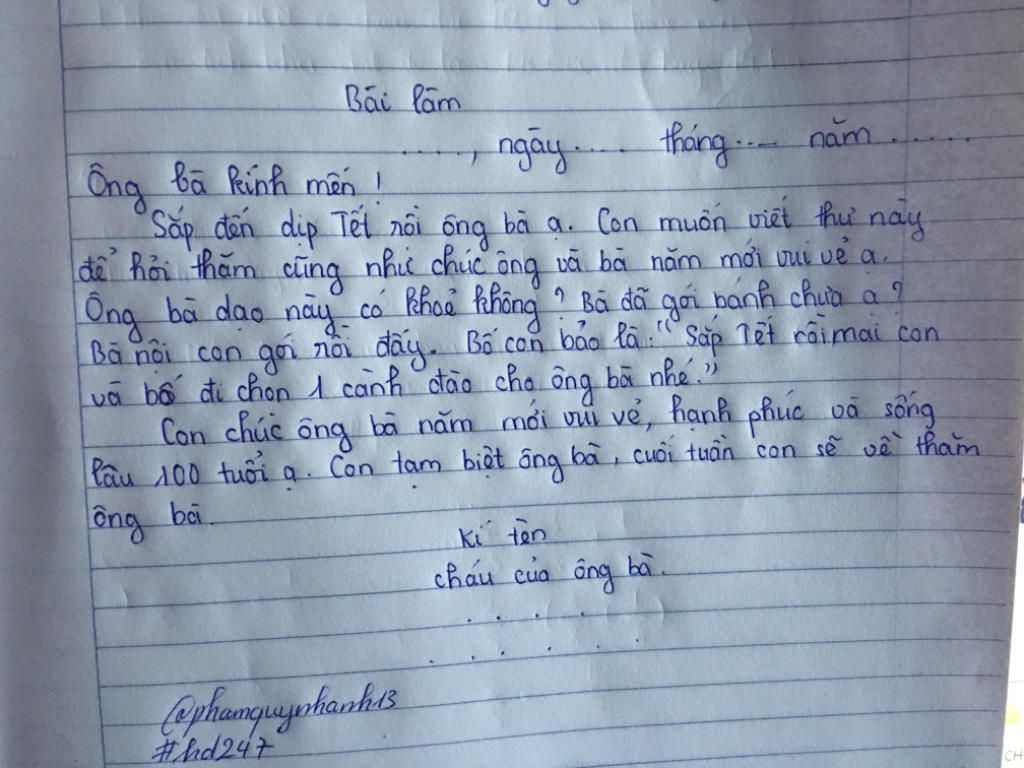 Bài làm
....., ngày.... tháng.... năm......
Ông bà kính mến!
Sắp đến dịp Tết rồi ông bà ạ. Con muốn viết thư này
để hỏi thăm cũng như chúc ông và bà năm mới vui vẻ ạ.
Ông bà dạo này có khoẻ không? Bà đã gói bánh chưa ạ?
Bà nội con gói rồi đấy. Bố con bảo là: "Sắp Tết rồi mai con
và bố đi chọn 1 cành đào cho ông bà nhé."
Con chúc ông bà năm mới vui vẻ, hạnh phúc và sống
lâu 100 tuổi ạ. Con tạm biệt ông bà, cuối tuần con sẽ về thăm
ông bà.
Kí tên
cháu của ông bà.
. . . .
. . . . . .
@phamquynhanh13
#hd247
CH